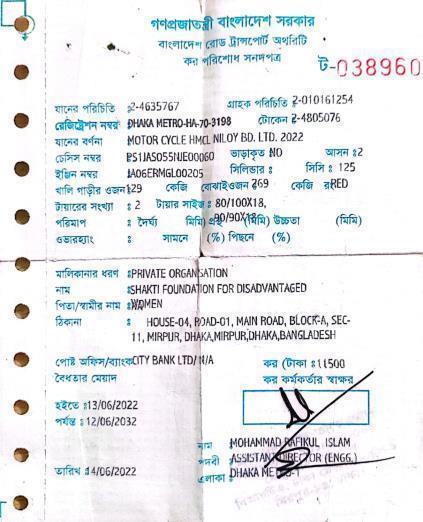 গণপ্রজাতন্ত্রী বাংলাদেশ সরকার
বাংলাদেশ রোড ট্রান্সপোর্ট অথরিটি
কর পরিশোধ সনদপত্র
ট-038960
যানের পরিচিতি ঃ2-4635767 গ্রাহক পরিচিতি ঃ2-010161254
রেজিষ্ট্রেশন নম্বর ঃDHAKA METRO-HA-70-3198 টোকেন ঃ2-4805076
যানের বর্ণনা ঃMOTOR CYCLE HMCL NILOY BD. LTD. 2022
চেসিস নম্বর ঃPS1JAS055NJE00060 ভাড়াকৃত ঃNO আসন ঃ2
ইঞ্জিন নম্বর ঃJA06ERMGL00205 সিলিন্ডার ঃ সিসি ঃ 125
খালি গাড়ীর ওজন ঃ129 কেজি বোঝাইওজন ঃ269 কেজি রংঃRED
টায়ারের সংখ্যা ঃ 2 টায়ার সাইজ ঃ 80/100X18,
90/90X18
পরিমাপ ঃ দৈর্ঘ্য মিমি) প্রস্থ (মিমি) উচ্চতা (মিমি)
ওভারহ্যাং ঃ সামনে (%) পিছনে (%)
মালিকানার ধরণ ঃPRIVATE ORGANISATION
নাম ঃSHAKTI FOUNDATION FOR DISADVANTAGED
WOMEN
পিতা/স্বামীর নাম ঃN/A
ঠিকানা ঃ HOUSE-04, ROAD-01, MAIN ROAD, BLOCK-A, SEC-
11, MIRPUR, DHAKA,MIRPUR,DHAKA,BANGLADESH
পোষ্ট অফিস/ব্যাংকঃCITY BANK LTD/ N/A কর (টাকা ঃ11500
বৈধতার মেয়াদ কর কর্মকর্তার স্বাক্ষর
হইতে ঃ13/06/2022
পর্যন্ত ঃ 12/06/2032
নাম ঃMOHAMMAD RAFIKUL ISLAM
পদবী ঃASSISTANT DIRECTOR (ENGG.)
তারিখ ঃ14/06/2022 এলাকা ঃDHAKA METRO-1